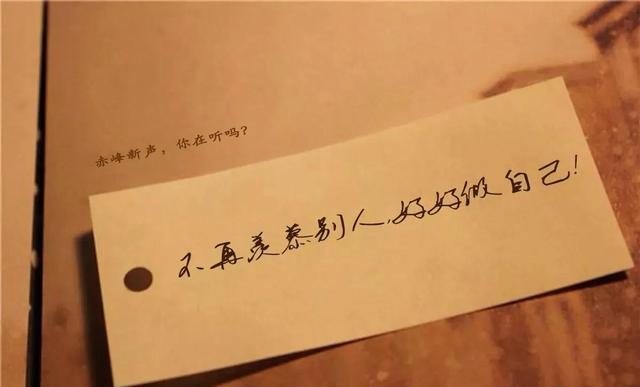 赤峰新声，你在听吗？
不再羡慕别人，好好做自己！